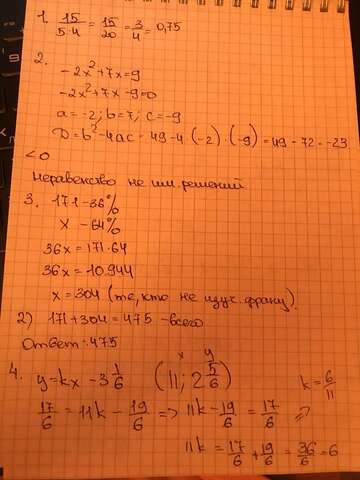 1. 15/5·4 = 15/20 = 3/4 = 0,75
2.
-2x²+7x=9
-2x²+7x-9=0
a=-2; b=7; c=-9
D=b²-4ac=49-4(-2)·(-9)=49-72=-23
<0
Неравенство не им. решений
3. 171-36%
x-64%
36x=171·64
36x=10944
x=304 (те, кто не изуч. франц.)
2) 171+304=475-всего
Ответ: 475
x y
4. y=kx-3 1/6 (11; 2 5/6) k=6/11
17/6=11k-19/6 => 11k-19/6=17/6 =>
11k=17/6+19/6=36/6=6